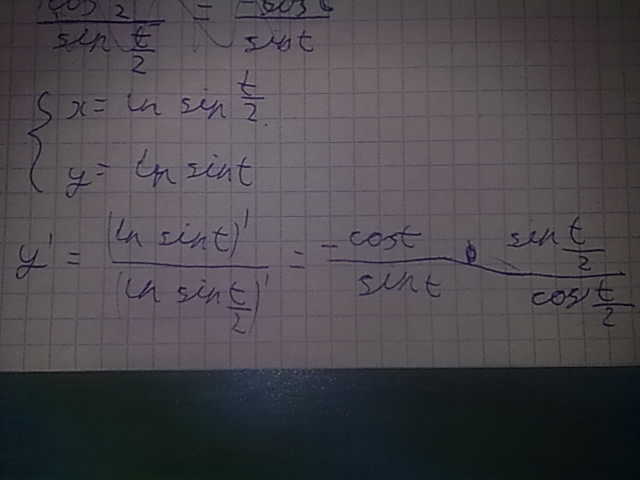 cos 2 / sin t/2 = -cos t / sin t
{ x = ln sin t/2
y = ln sin t
y' = (ln sin t)' / (ln sin t/2)' = - cos t / sin t · sin t/2 / cos t/2